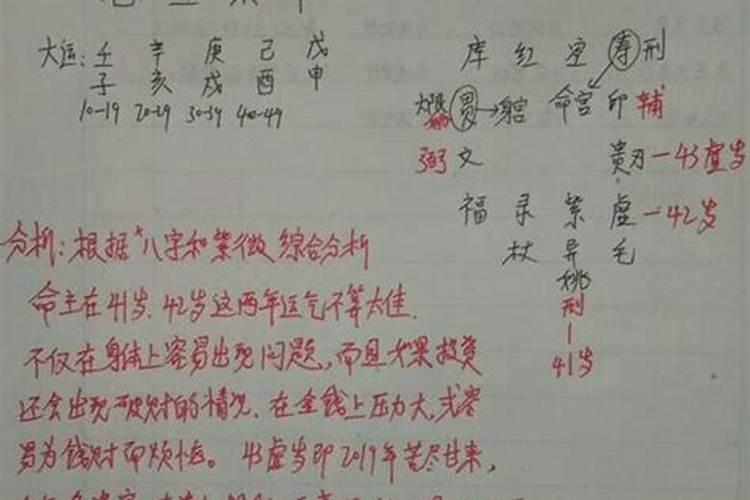 大运: 壬 辛 庚 己 戊
子 亥 戌 酉 申
10-19 20-29 30-39 40-49
库 红 空 寿 刑
大限 贯→ 命宫 印 辅
弼 文 贵刃-43虚岁
福 录 紫 虚-42岁
杖 异 毛
姚
刑
41岁
分析: 根据"八字和紫微综合分析
命主在41岁、42岁这两年运气不算太佳.
不仅在身体上容易出现问题, 而且如果投资
还会出现破财的情况. 在金钱上压力大, 或容
易为钱财而烦恼。 43虚岁即2019年苦尽甘来,